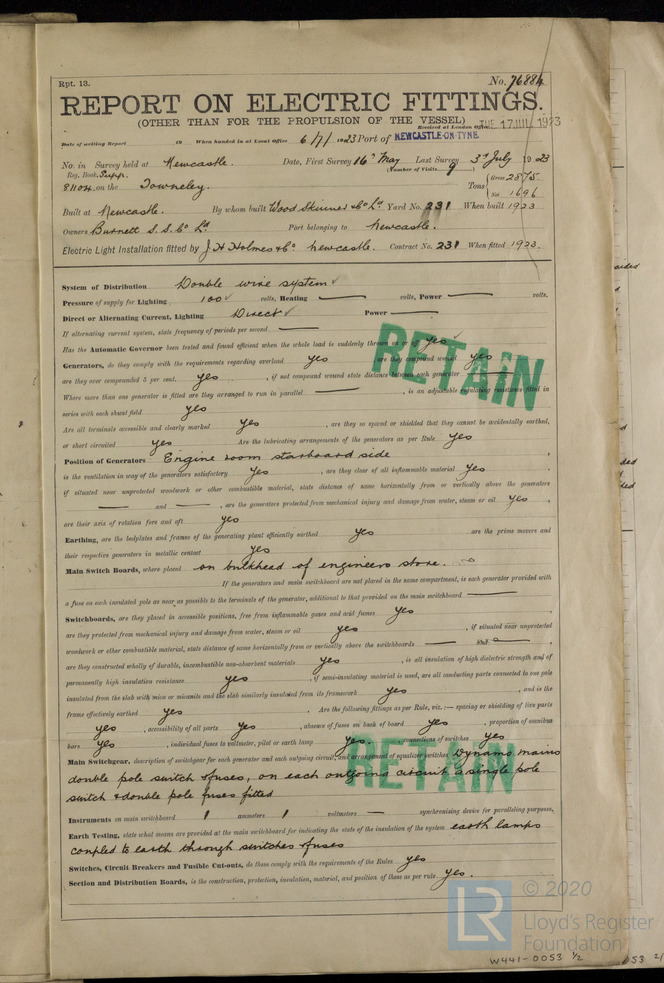 Rpt. 13.
No. 76884
REPORT ON ELECTRIC FITTINGS.
(OTHER THAN FOR THE PROPULSION OF THE VESSEL)
Received at London Office TUE 17 JUL 1923
Date of writing Report 19 When handed in at Local Office 6/7/1923 Port of NEWCASTLE-ON-TYNE
No. in Survey held at Newcastle. Date, First Survey 16th May Last Survey 3rd July 1923
Reg. Book. Supp. (Number of Visits 9)
81104 on the Towneley. Tons { Gross 2875 Net 1696
Built at Newcastle. By whom built Wood Skinner & Co Ld Yard No. 231 When built 1923
Owners Burnett S.S. Co Ld Port belonging to Newcastle.
Electric Light Installation fitted by J H Holmes & Co Newcastle. Contract No. 231 When fitted 1923.
System of Distribution Double wire system
Pressure of supply for Lighting 100 volts, Heating — volts, Power — volts.
Direct or Alternating Current, Lighting Direct Power —
If alternating current system, state frequency of periods per second —
Has the Automatic Governor been tested and found efficient when the whole load is suddenly thrown on or off yes
Generators, do they comply with the requirements regarding overload yes, are they compound wound yes
are they over compounded 5 per cent. yes, if not compound wound state distance between each generator —
Where more than one generator is fitted are they arranged to run in parallel —, is an adjustable regulating resistance fitted in
series with each shunt field yes
Are all terminals accessible and clearly marked yes, are they so spaced or shielded that they cannot be accidentally earthed,
or short circuited yes Are the lubricating arrangements of the generators as per Rule yes
Position of Generators Engine room starboard side
is the ventilation in way of the generators satisfactory yes, are they clear of all inflammable material yes
if situated near unprotected woodwork or other combustible material, state distance of same horizontally from or vertically above the generators
— and —, are the generators protected from mechanical injury and damage from water, steam or oil yes,
are their axis of rotation fore and aft yes
Earthing, are the bedplates and frames of the generating plant efficiently earthed yes are the prime movers and
their respective generators in metallic contact yes
Main Switch Boards, where placed on bulkhead of engineers store.
If the generators and main switchboard are not placed in the same compartment, is each generator provided with
a fuse on each insulated pole as near as possible to the terminals of the generator, additional to that provided on the main switchboard —
Switchboards, are they placed in accessible positions, free from inflammable gases and acid fumes yes,
are they protected from mechanical injury and damage from water, steam or oil yes, if situated near unprotected
woodwork or other combustible material, state distance of same horizontally from or vertically above the switchboards — and —,
are they constructed wholly of durable, incombustible non-absorbent materials yes, is all insulation of high dielectric strength and of
permanently high insulation resistance yes, if semi-insulating material is used, are all conducting parts connected to one pole
insulated from the slab with mica or micanite and the slab similarly insulated from its framework yes, and is the
frame effectively earthed yes. Are the following fittings as per Rule, viz.:— spacing or shielding of live parts
yes, accessibility of all parts yes, absence of fuses on back of board yes, proportion of omnibus
bars yes, individual fuses to voltmeter, pilot or earth lamp yes. connections of switches yes
Main Switchgear, description of switchgear for each generator and each outgoing circuit, and arrangement of equalizer switches Dynamo mains
double pole switch & fuses, on each outgoing circuit a single pole
switch & double pole fuses fitted
Instruments on main switchboard 1 ammeters 1 voltmeters — synchronising device for paralleling purposes.
Earth Testing, state what means are provided at the main switchboard for indicating the state of the insulation of the system earth lamps
coupled to earth through switches & fuses
Switches, Circuit Breakers and Fusible Cut-outs, do these comply with the requirements of the Rules yes
Section and Distribution Boards, is the construction, protection, insulation, material, and position of these as per rule yes.
RETAIN
RETAIN
© 2020
LR
Lloyd's Register
Foundation
W441-0053 1/2